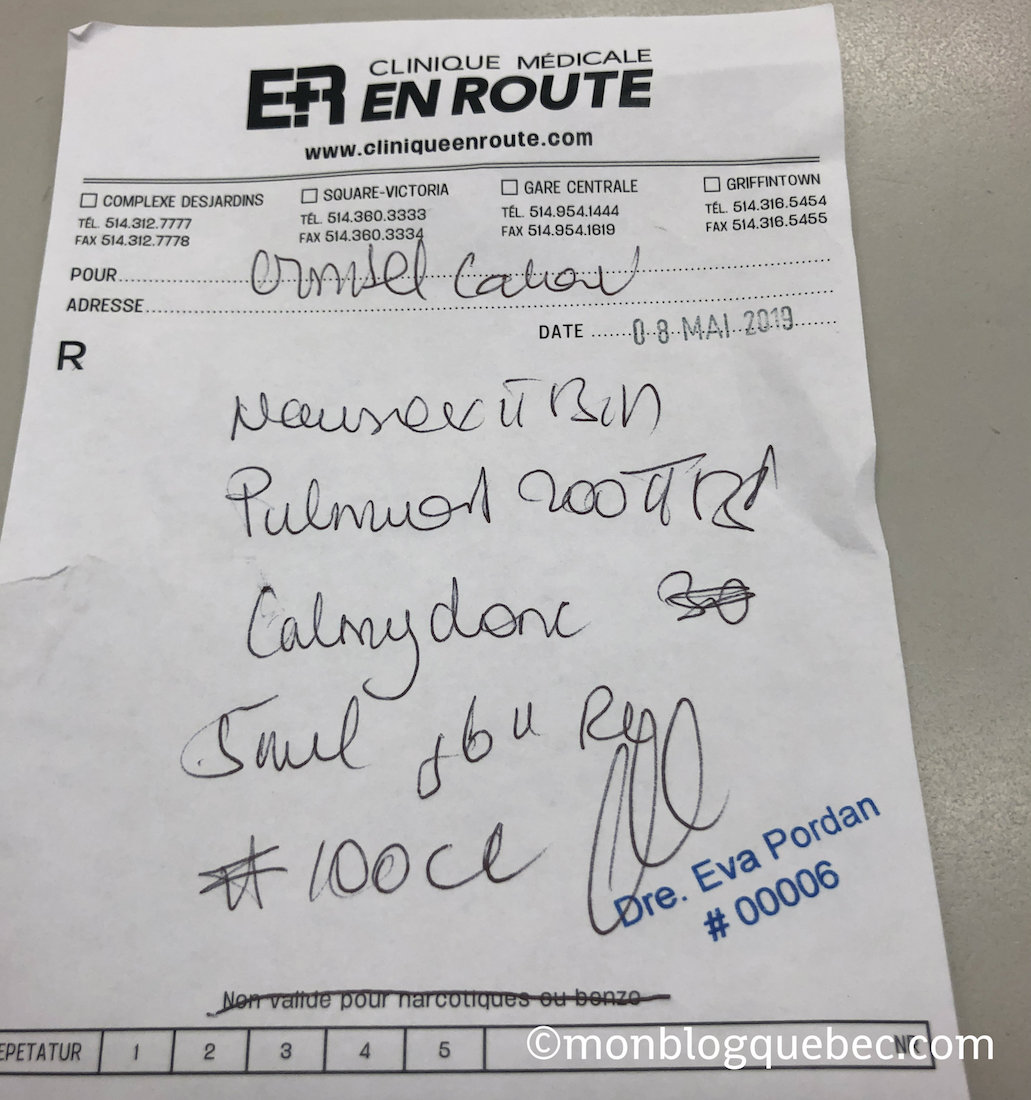 CLINIQUE MÉDICALE
E+R EN ROUTE
www.cliniqueenroute.com
☐ COMPLEXE DESJARDINS ☐ SQUARE-VICTORIA ☐ GARE CENTRALE ☐ GRIFFINTOWN
TÉL. 514.312.7777 TÉL. 514.360.3333 TÉL. 514.954.1444 TÉL. 514.316.5454
FAX 514.312.7778 FAX 514.360.3334 FAX 514.954.1619 FAX 514.316.5455
POUR
ADRESSE
DATE 08 MAI 2019
R
BID
200
Calmydone
5ml
#100cc
Dre. Eva Pordan
# 00006
Non valide pour narcotiques ou benzo
EPETATUR 1 2 3 4 5 NR
©monblogquebec.com